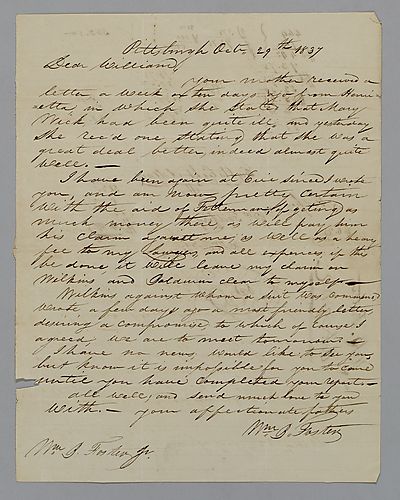 Pittsburgh Octr. 29th 1837
Dear William,
your mother received a
letter a week or ten days ago from Henri
etta in which she States that Mary
Wick had been quite ill, and yesterday
She recd one Stating that she was a
great deal better, indeed almost quite
well.—
I have been again at Erie since I wrote
you, and am now pretty certain
with the aid of Fetterman of getting as
much money there, as will pay him
his claim against me, as well as a heavy
fee to my Lawyer, and all expenses, if this
be done it will leave my claim on
Wilkins and Baldwin clear to myself—
Wilkins against whom a suit was commenced
wrote a few days ago a most friendly letter,
desiring a compromise, to which of course I
agreed, we are to meet tomorrow.—
I have no news, would like to see you,
but know it is impossible for you to come
until you have completed your report.—
all well, and send much love to you
with.— your affectionate father
Wm B. Foster
Wm B. Foster Jr.